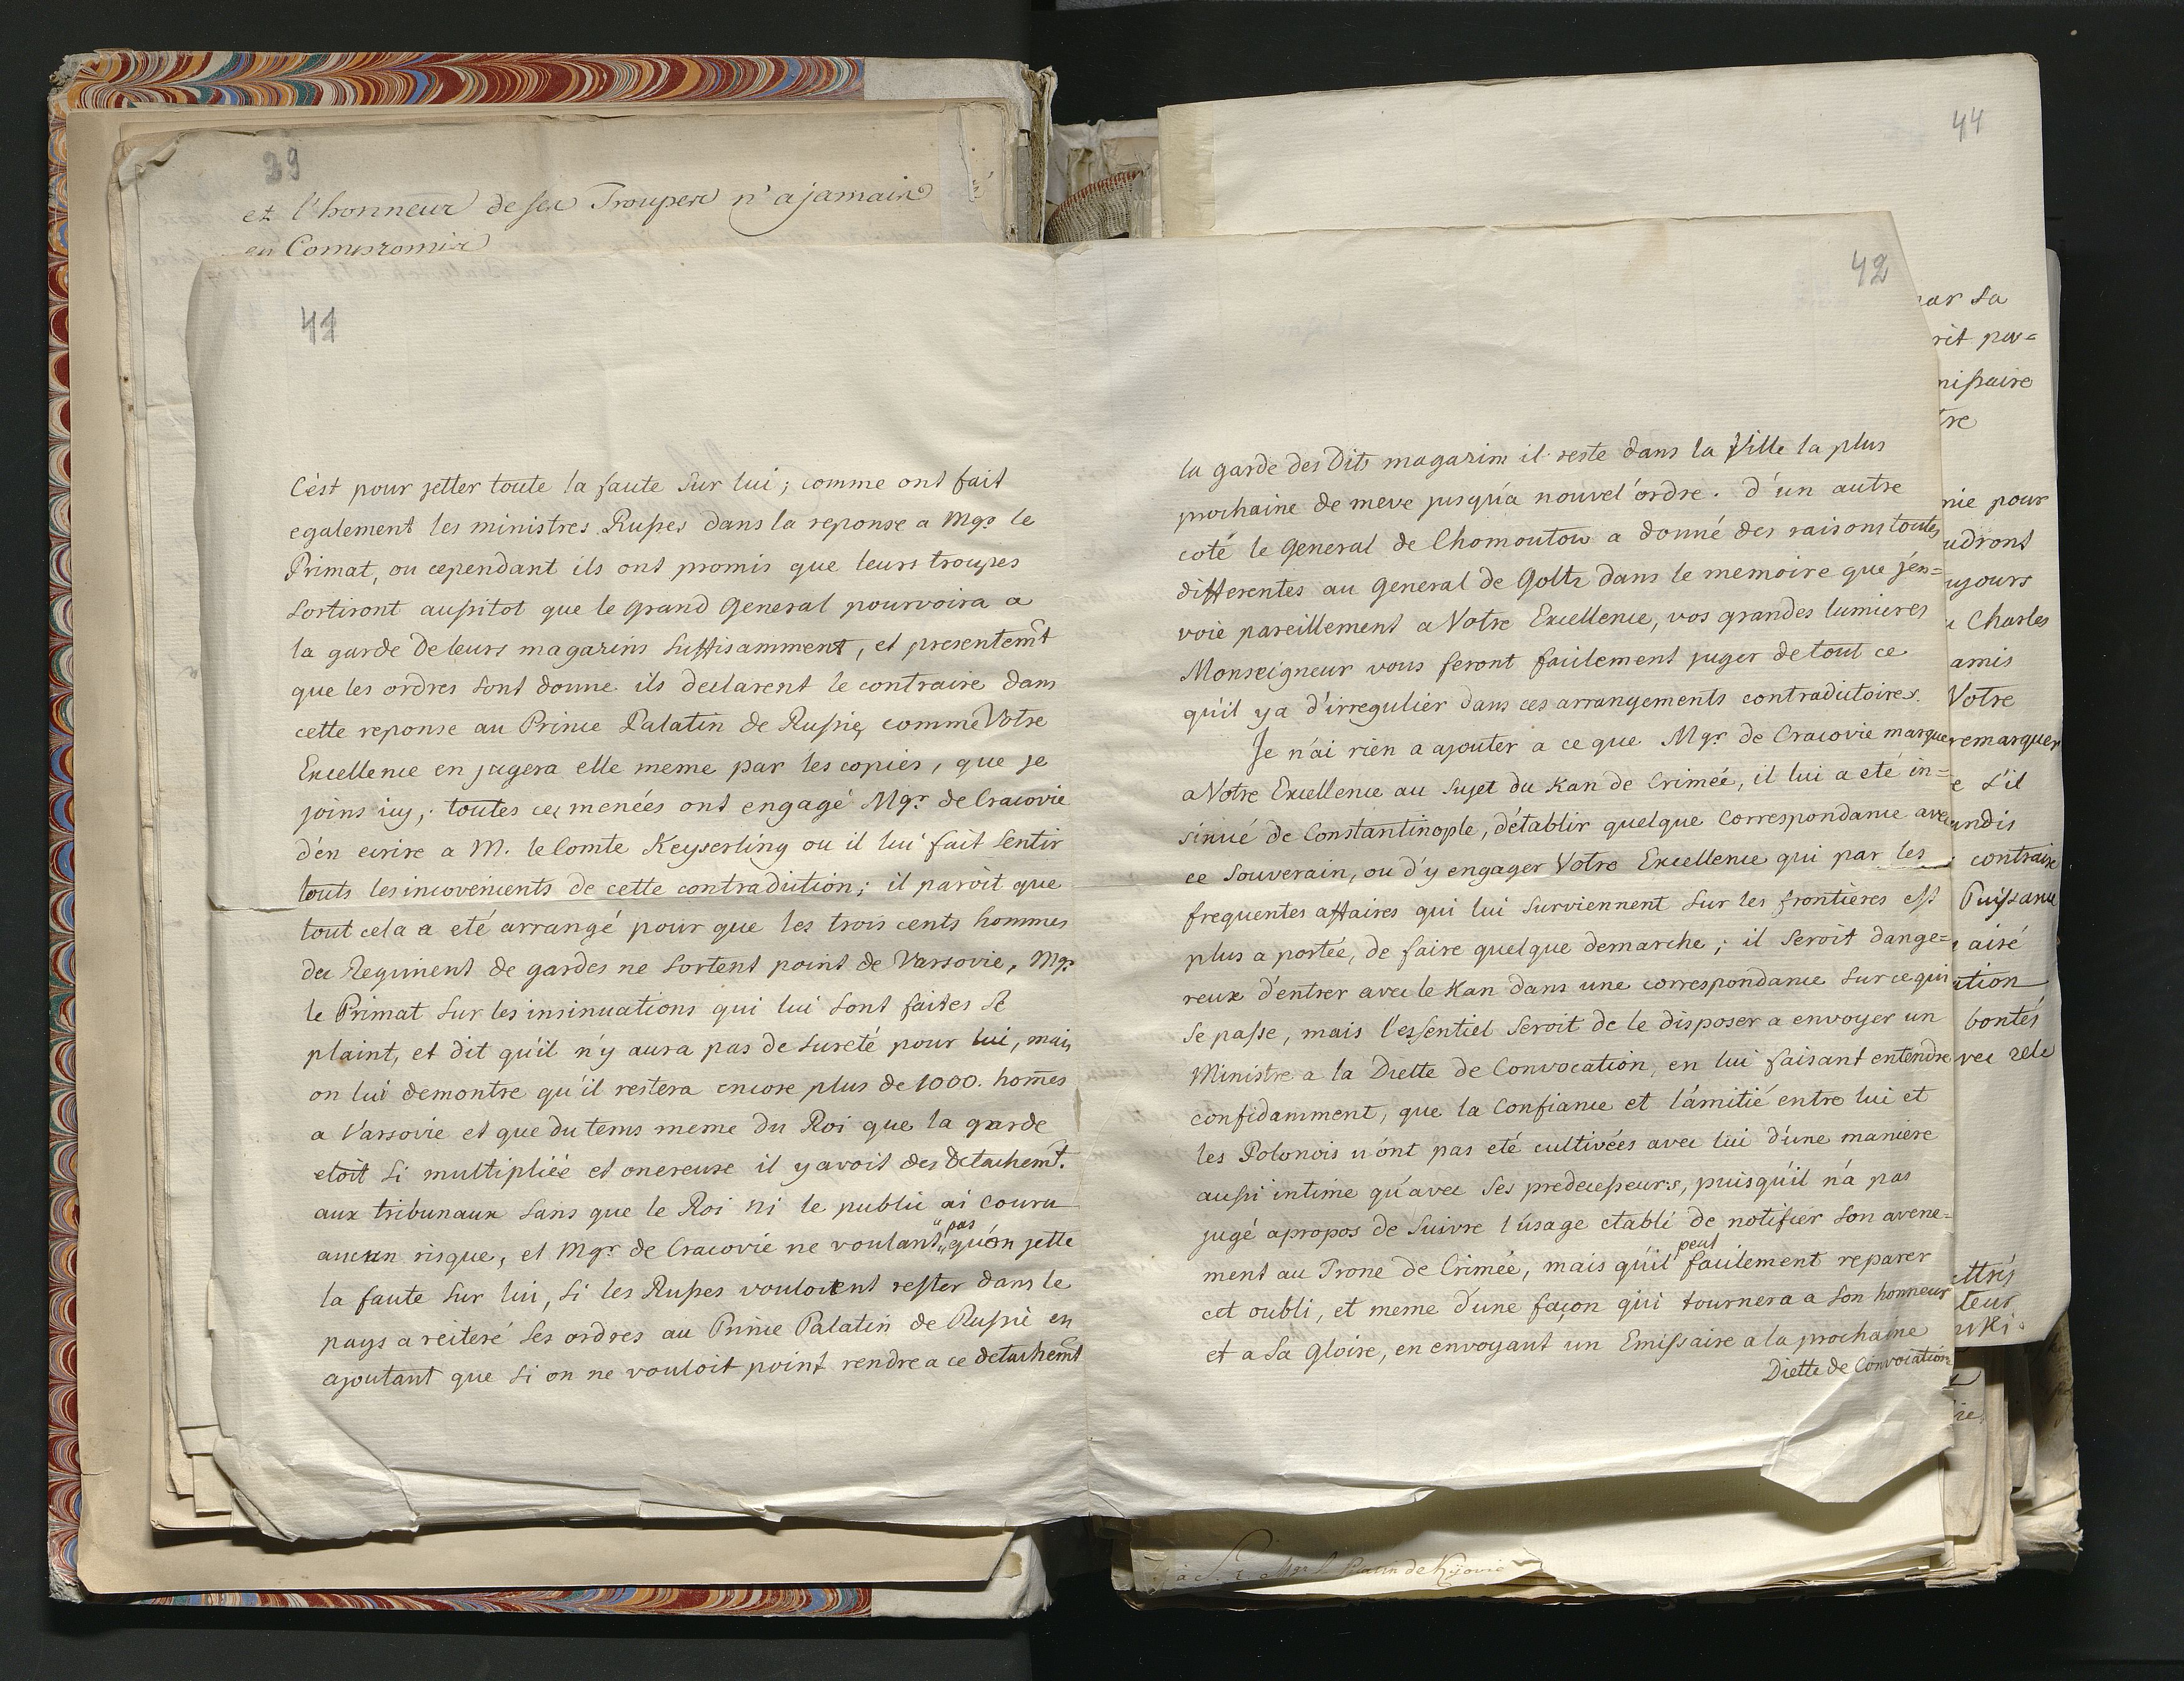 39
et l'honneur de ses Troupes n'a jamais
en Compromis
41
C'est pour jetter toute la faute sur lui; comme ont fait
egalement les ministres Russes dans la reponse a Mgr le
Primat, ou cependant ils ont promis que leurs troupes
sortiront aussitot que le grand General pourvoira a
la garde de leurs magazins suffisamment, et presentemt
que les ordres sont donne ils declarent le contraire dans
cette reponse au Prince Palatin de Russie, comme Votre
Excellence en jugera elle meme par les copies, que je
joins icy; toutes ces menées ont engagé Mgr de Cracovie
d'en ecrire a M. le Comte Keyserling ou il lui fait sentir
touts les incovenients de cette contradiction; il paroit que
tout cela a eté arrangé pour que les trois cents hommes
du Regiment de gardes ne sortent point de Varsovie, Mgr
le Primat sur les insinuations qui lui sont faites se
plaint, et dit qu'il n'y aura pas de sureté pour lui, mais
on lui demontre qu'il restera encore plus de 1000. homes
a Varsovie et que du tems meme du Roi que la garde
etoit si multipliée et onereuse il y avoit des detachemt.
aux tribunaux sans que le Roi ni le public ai couru
aucun risque, et Mgr de Cracovie ne voulant pas qu'on jette
la faute sur lui, si les Russes vouloient rester dans le
pays a reiteré ses ordres au Prince Palatin de Russie en
ajoutant que si on ne vouloit point rendre a ce detachemt
42
la garde des Dits magazins il reste dans la Ville la plus
prochaine de meve jusqu'a nouvel'ordre. d'un autre
coté le General de Chomoutow a donné des raisons toutes
differentes au General de Goltz dans le memoire que j'en=
voie pareillement a Votre Excellence, vos grandes lumieres
Monseigneur vous feront facilement juger de tout ce
qu'il y a d'irregulier dans ces arrangements contradictoires.
Je n'ai rien a ajouter a ce que Mgr de Cracovie marque
a Votre Excellence au sujet du Kan de Crimée, il lui a eté in=
sinué de Constantinople, d'établir quelque correspondance avec
ce Souverain, ou d'y engager Votre Excellence qui par les
frequentes affaires qui lui surviennent sur les frontieres est
plus a portée, de faire quelque demarche; il seroit dange=
reux d'entrer avec le Kan dans une correspondance sur ce qui
se passe, mais l'essentiel seroit de le disposer a envoyer un
Ministre a la Diette de Convocation, en lui faisant entendre
confidamment, que la confiance et l'amitié entre lui et
les Polonois n'ont pas eté cultivées avec lui d'une maniere
aussi intime qu'avec ses predecesseurs, puisqu'il n'a pas
jugé apropos de suivre l'usage etabli de notifier son avene=
ment au Trone de Crimée, mais qu'il peut facilement reparer
cet oubli, et meme d'une façon qui tournera a son honneur
et a sa gloire, en envoyant un Emissaire a la prochaine
Diette de Convocation
44
par sa
nissaire
nie pour
udront
Charles
amis
Votre
remarquer
s'il
contraire
Puissance
aisé
bontés
zele
à S. E. Mgr le Palatin de Kijovie